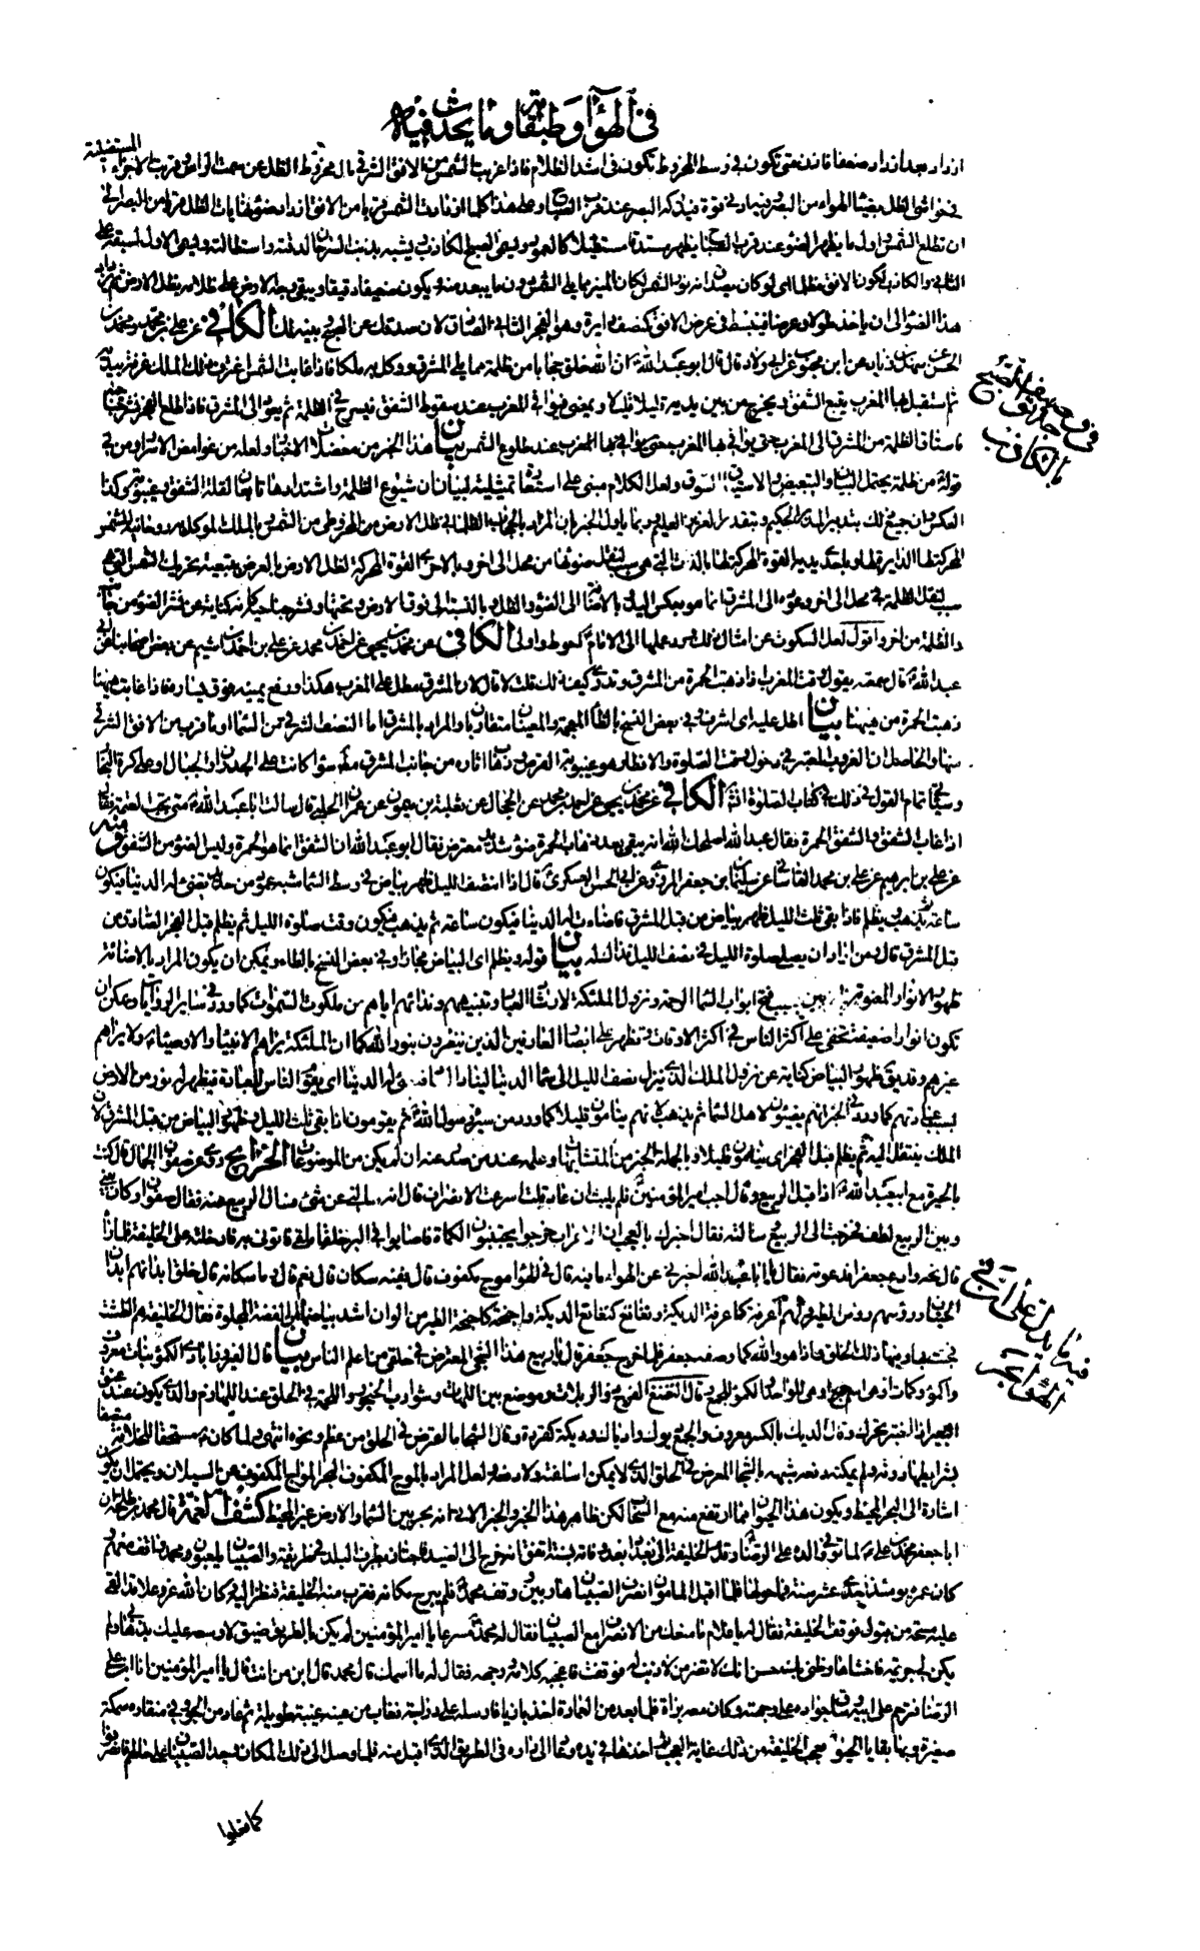 في الهواء وطبقاته وما يحدث فيه
المستضيئة
ازداد بعدا ازداد ضعفا فاذن متى تكون في وسط المخروط تكون في اشد الظلام فاذا قربت الشمس من الافق الشرقي مال مخروط الظل عن سمت الراس وقربت الاجزاء
في حواشي الظل بضياء الهواء من البصر وفيه ادنى قوة فيدركه البصر عند قرب الصباح وعلى هذا كلما ازدادت الشمس قربا من الافق ازداد ضوء نهايات الظل قربا من البصر الى
ان تطلع الشمس واول ما يظهر الضوء عند قرب الصباح يظهر مستدقا مستطيلا كالعمود ويسمى الصبح الكاذب ويشبه بذنب السرحان لدقته واستطالته ويسمى الاول لسبقه على
الثاني والكاذب لكون الافق مظلما اي لو كان يصدق انه نور الشمس لكان المنير مما يلي الشمس دون ما يبعد منه ويكون ضعيفا دقيقا ويبقى وجه الارض على ظلامه بظل الارض ثم يزداد
هذا الضوء الى ان ياخذ طولا وعرضا فينبسط في عرض الافق كنصف دايرة وهو الفجر الثاني الصادق لانه صدقك عن الصبح وبينه لك الكافي عن علي بن محمد ومحمد بن
الحسن عن سهل بن زياد عن ابن محبوب عن ابي ولاد قال قال ابو عبد الله ان الله خلق حجابا من ظلمة مما يلي المشرق ووكل به ملكا فاذا غابت الشمس اغترف ذلك الملك غرفة بيديه
ثم استقبل بها المغرب يتبع الشفق ويخرج من بين يديه قليلا قليلا ويمضي فيوافي المغرب عند سقوط الشفق فيسرح في الظلمة ثم يعود الى المشرق فاذا طلع الفجر نشر جناحيه
فاستاق الظلمة من المشرق الى المغرب حتى يوافي بها المغرب عند طلوع الشمس بيان هذا الخبر من معضلات الاخبار ولعله من غوامض الاسرار ومن في
في وجه تسمية الصبح
بالكاذب
قوله من ظلمة يحتمل البيان والتبعيض والاستياق السوق ولعل الكلام مبني على استعارة تمثيلية لبيان ان شيوع الظلمة واشتدادها تابعان لقلة الشفق وغيبوبته وكذا
العكس وان جميع ذلك بتدبير المدبر الحكيم وبتقدير العزيز العليم وربما ياول الخبر بان المراد بالحجاب الظلماني ظل الارض المخروطي من الشمس وبالملك الموكل به روحانية الشمس
المحركة لها الدايرة بها وباحدى يديه القوة المحركة لها بالذات التي هي سبب لنقل ضوئها من محل الى اخر وبالاخرى القوة المحركة لظل الارض بالعرض بتبعية تحريك الشمس التي هي
سبب لنقل الظلمة من محل الى اخر وعوده الى المشرق انما هو بعكس البدء بالاضافة الى الضوء والظل وبالنسبة الى فوق الارض وتحتها ونشر جناحيه كانه كناية عن نشر الضوء من جانب
والظلمة من اخر واقول لعل السكوت عن امثال ذلك ورد علمها الى الامام احوط واولى الكافي عن محمد بن يحيى عن احمد بن محمد عن علي بن احمد بن اشيم عن بعض اصحابنا عن ابي
عبد الله قال سمعته يقول وقت المغرب اذا ذهبت الحمرة من المشرق وتدري كيف ذلك قلت لا قال لان المشرق مطل على المغرب هكذا ورفع يمينه فوق يساره فاذا غابت ههنا
ذهبت الحمرة من ههنا بيان اطل عليه اي اشرف وفي بعض النسخ بالظاء المعجمة والمعنيان متقاربان والمراد بالمشرق اما النصف الشرقي من السماء او ما قرب من الافق الشرقي
منها والحاصل ان الغروب المعتبر في دخول وقت الصلوة والافطار هو غيبوبة القرص وذهاب اثاره من جانب المشرق مطلقا سواء كانت على الجدران والجبال او على كرة البخار
وسيجيء تمام القول في ذلك في كتاب الصلوة انشاء الله الكافي عن محمد بن يحيى عن احمد بن محمد عن الحجال عن ثعلبة بن ميمون عن عمران الحلبي قال سالت ابا عبد الله متى تجب العتمة فقال
اذا غاب الشفق والشفق الحمرة فقال عبيد الله اصلحك الله انه يبقى بعد ذهاب الحمرة ضوء شديد معترض فقال ابو عبد الله ان الشفق انما هو الحمرة وليس الضوء من الشفق ومنه
عن علي بن ابرهيم عن علي بن محمد القاساني عن سليمان بن جعفر المروزي عن ابي الحسن العسكري قال اذا انتصف الليل ظهر بياض في وسط السماء شبه عمود من حديد تضيء له الدنيا فيكون
ساعة ثم يذهب ويظلم فاذا بقي ثلث الليل ظهر بياض من قبل المشرق فاضاءت له الدنيا فيكون ساعة ثم يذهب فيكون وقت صلوة الليل ثم يظلم قبل الفجر ثم يطلع الفجر الصادق من
قبل المشرق قال ومن اراد ان يصلي صلوة الليل في نصف الليل فذلك له بيان قوله ويظلم اي البياض مجازا وفي بعض النسخ بالظاء ويمكن ان يكون المراد بالاضاءة
ظهور الانوار المعنوية بسبب فتح ابواب السماء الرحمة ونزول الملئكة لارشاد العباد وتنبيههم وندائهم اياهم من ملكوت السموات كما ورد في ساير الروايات ويمكن ان
تكون انوارا ضعيفة تخفى على اكثر الناس في اكثر الاوقات وتظهر على ابصار العارفين الذين ينظرون بنور الله كما ان الملئكة يراهم الانبياء والاوصياء ولا يراهم
غيرهم وقد يق ظهور البياض كناية عن نزول الملك الذي ينزل نصف الليل الى سماء الدنيا لينادي العباد فتضيء له الدنيا اي يقوم الناس للعبادة فيظهر له نور من الارض
بسبب عبادتهم كما ورد في الخبر انهم يضيئون لاهل السماء ثم يذهب لانهم ينامون قليلا كما ورد من سيرة رسول الله ثم يقومون اذا بقي ثلث الليل وظهور البياض من قبل المشرق لان
الملك ينتقل اليه ثم يظلم قبل الفجر اي ينامون قليلا وبالجملة الخبر من المتشابهات وعلمه عند من صدر عنه ان لم يكن من الموضوعات الخرايج روى عن صفوان الجمال قال كنت
بالحيرة مع ابي عبد الله اذ اقبل الربيع وقال اجب امير المؤمنين فلم يلبث ان عاد قلت اسرعت الانصراف قال انه سالني عن شيء فسال الربيع عنه فقال صفوان وكان بيني
وبين الربيع لطف فخرجت الى الربيع وسالته فقال اخبرك بالعجب ان الاعراب خرجوا يجتنون الكماة فاصابوا في البر خلقا ملقى فاتوني به فادخلته على الخليفة فلما راه
فيه ما يدل على ان في
الهواء بحر
قال نحه وادع جعفرا فدعوته فقال يا ابا عبد الله اخبرني عن الهواء ما فيه قال في الهواء موج مكفوف قال ففيه سكان قال نعم قال وما سكانه قال خلق ابدانهم ابدان
الحيتان ورؤسهم رؤس الطير ولهم اعرفة كاعرفة الديكة ونغانغ كنغانغ الديكة واجنحة كاجنحة الطير من الوان اشد بياضا من الفضة المجلوة فقال الخليفة هلم الطشت
فجئت بها وفيها ذلك الخلق فاذا هو والله كما وصفه جعفر فلما خرج جعفر قال يا ربيع هذا الشجى المعترض في حلقي من اعلم الناس بيان قال الفيروزابادي الكمؤ نبات معروف
واكمؤ وكماة او هي اسم جمع او هي للواحد والكمؤ للجمع وقال النغنغ الفرج ذو الربلات وموضع بين اللهاة وشوارب الحنجور واللحمة في الحلق عند اللهازم والذي يكون عند عنق
البعير اذا اجتر تحرك وقال الديك بالكسر معروف والجمع ديوك وادياك وديكة كقردة وقال الشجا ما اعترض في الحلق من عظم ونحوه انتهى ولما كان مستحقا للخلافة متصفا
بشرايطها دونه ولم يمكنه دفعه شبهه بالشجا المعترض في الحلق الذي لا يمكن اساغته ولا دفعه ولعل المراد بالموج المكفوف البحر المواج المكفوف عن السيلان ويحتمل ان يكون
اشارة الى البحر المحيط ويكون هذا الحيوان مما ارتفع منه مع السحاب لكن ظاهر هذا الخبر والخبر الاتي انه بحر بين السماء والارض غير المحيط كشف الغمة قال محمد بن طلحة ان
ابا جعفر محمد بن علي لما توفي والده علي الرضا وقدم الخليفة الى بغداد بعد وفاته بسنة اتفق انه خرج الى الصيد فاجتاز بطرف البلد في طريقه والصبيان يلعبون ومحمد واقف معهم
كان عمره يومئذ احدى عشر سنة فما حولها فلما اقبل المامون انصرف الصبيان هاربين ووقف محمد فلم يبرح مكانه فقرب منه الخليفة فنظر اليه وكان الله عز وعلا قد القى
عليه مسحة من قبول فوقف الخليفة فقال له يا غلام ما منعك من الانصراف مع الصبيان فقال له محمد مسرعا يا امير المؤمنين لم يكن بالطريق ضيق لاوسعه عليك بذهابي ولم
يكن لي جريمة فاخشاها وظني بك حسن انك لا تضر من لا ذنب له فوقفت فاعجبه كلامه ووجهه فقال له ما اسمك قال محمد قال ابن من انت قال يا امير المؤمنين انا ابن علي
الرضا فترحم على ابيه وساق جواده على وجهته وكان معه بزاة فلما بعد من العمارة اخذ بازيا فارسله على دراجة فغاب عن عينه غيبة طويلة ثم عاد من الجو وفي منقاره سمكة
صغيرة وبها بقايا الحيوة فعجب الخليفة من ذلك غاية العجب ثم اخذها في يده وعاد الى داره في الطريق الذي اقبل منه فلما وصل الى ذلك المكان وجد الصبيان على حالهم فانصرفوا
كما فعلوا